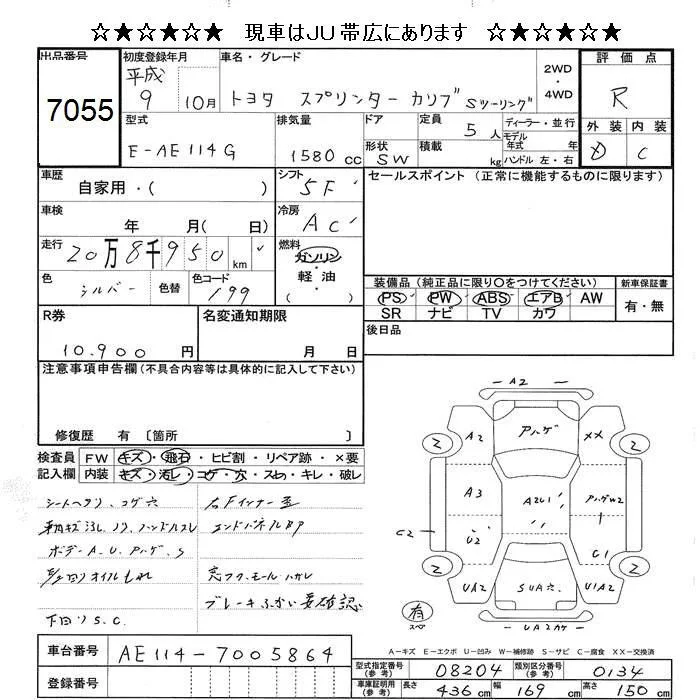 ☆★☆★☆★ 現車はJU帯広にあります ☆★☆★☆★
出品番号 7055
初度登録年月 平成 9 10月
車名・グレード トヨタ スプリンター カリブ Sツーリング
2WD・4WD
評価点 R
外装 D 内装 C
型式 E-AE114G
排気量 1580cc
ドア 形状 SW
定員 5人
積載 kg
ディーラー・並行
モデル年式 年式
ハンドル 左・右
車歴 自家用・( )
シフト 5F
セールスポイント (正常に機能するものに限ります)
車検 年 月( 日)
冷房 AC
走行 20万8千950km
燃料 ガソリン・軽油・( )
色 シルバー 色替 色コード 199
装備品 (純正品に限り○をつけてください)
PS PW ABS エアB AW
SR ナビ TV カワ
新車保証書 有・無
R券 10.900円
名変通知期限 月 日
後日品
注意事項申告欄 (不具合内容等は具体的に記入して下さい)
修復歴 有 〔箇所 〕
検査員記入欄
FW キズ・飛石・ヒビ割・リペア跡・×要
内装 キズ・汚レ・コゲ・穴・スレ・キレ・破レ
シートヘタリ、コゲ穴
右Fインナー歪
エンドパネルBP
ボデーA.U.Pハゲ.S
オイルもれ
モールハガレ
ブレーキふかい要確認
下回りS.C.
A2
A2 Pハゲ XX
2 2
A3 A2U1 PハゲW2
C2 U2 C1
2 2
UA2 SUA穴 U1A2
有 スペア
UA2Aケ
A-キズ E-エクボ U-凹み W-補修跡 S-サビ C-腐食 XX-交換済
車台番号 AE114-7005864
登録番号
型式指定番号(参考) 08204
類別区分番号(参考) 0134
車庫証明用(参考) 長さ 436cm 幅 169cm 高さ 150cm